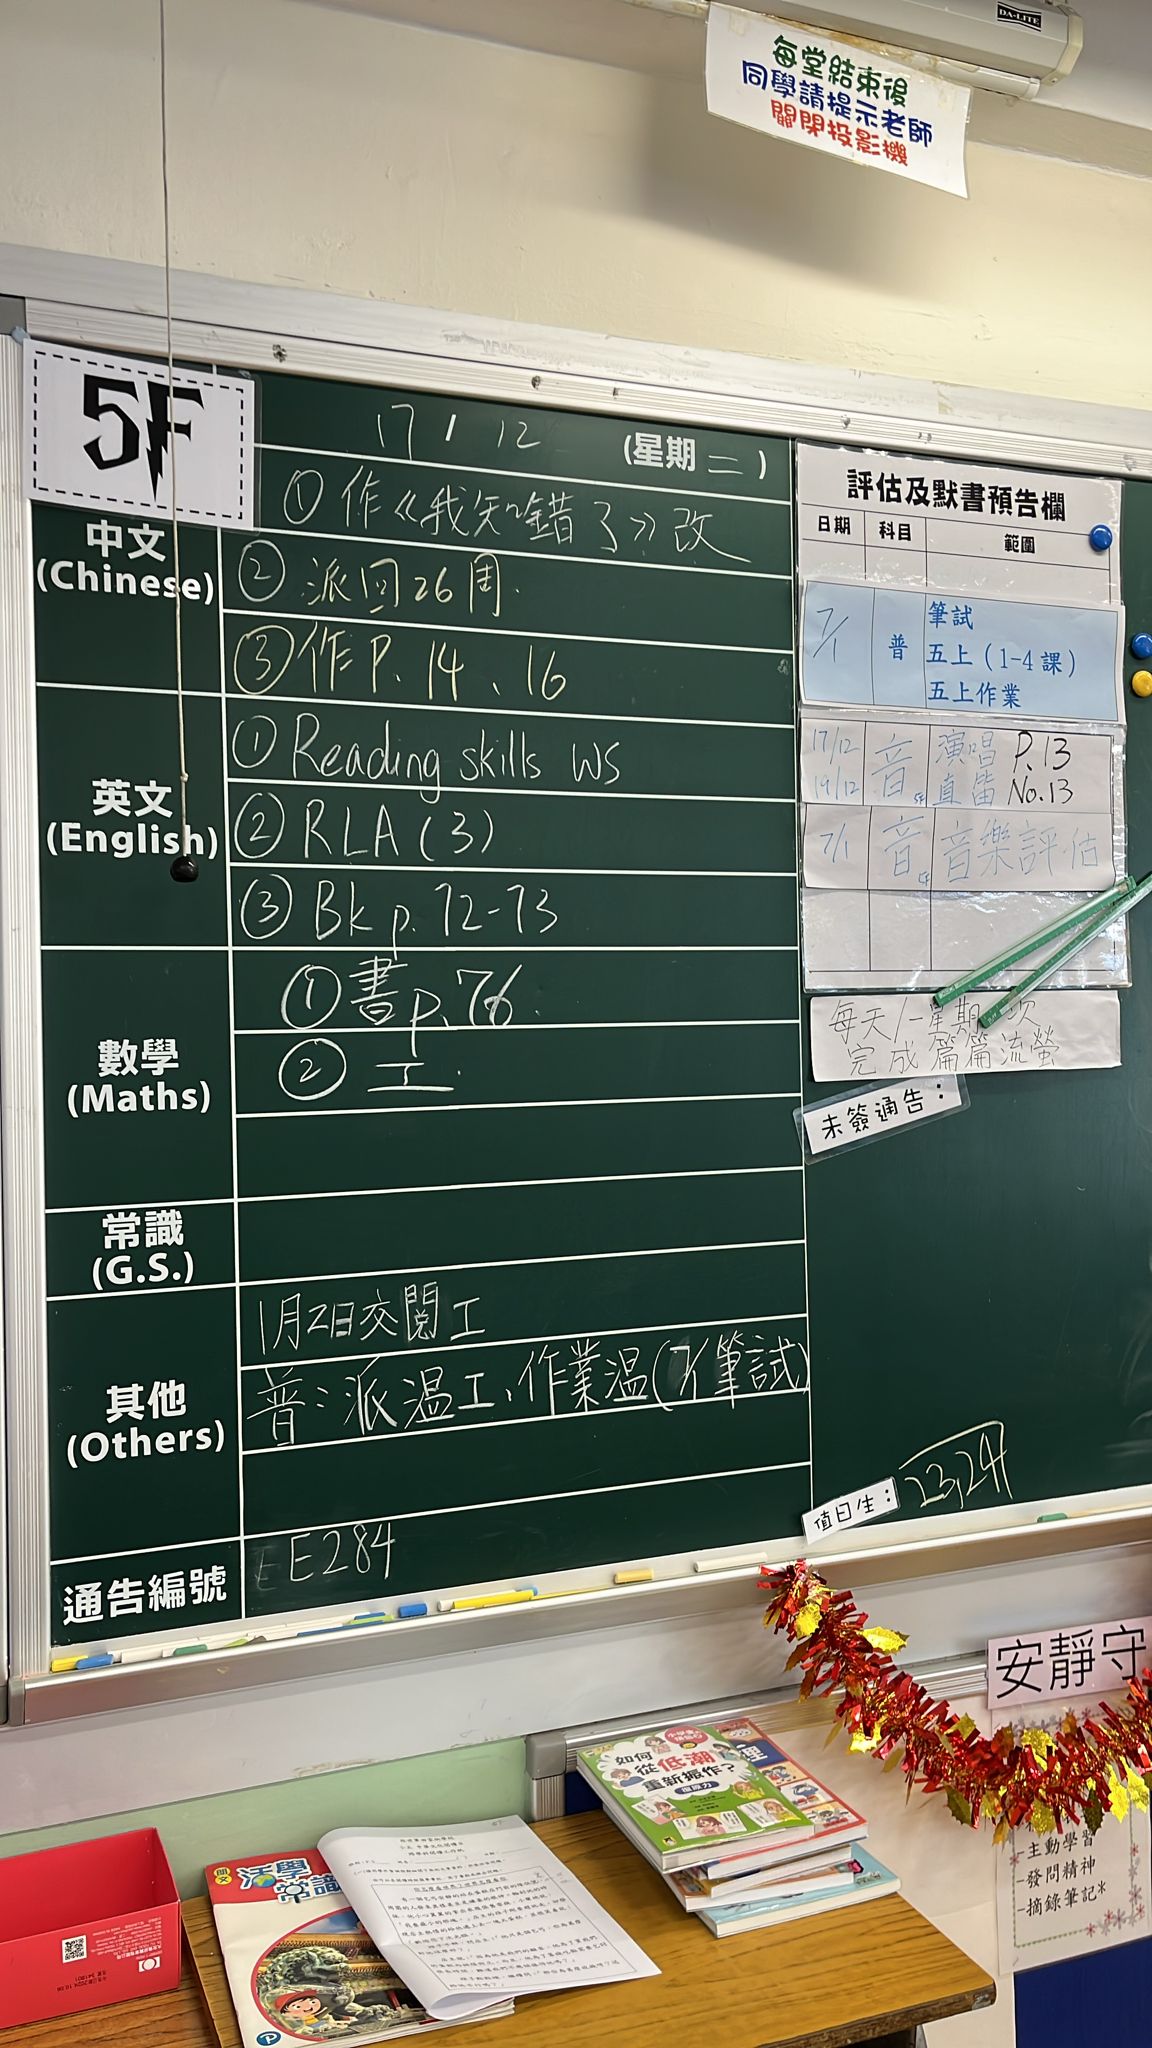 DA-LITE
每堂結束後
同學請提示老師
關閉投影機
5F
17 / 12 (星期二)
中文
(Chinese)
① 作《我知錯了》改
② 派回26周.
③ 作P. 14、16
英文
(English)
① Reading skills WS
② RLA (3)
③ Bk p. 72-73
數學
(Maths)
① 書p. 76.
② 工.
常識
(G.S.)
其他
(Others)
1月2日交閱工
普：派溫工、作業溫(7/1筆試)
通告編號
EE284
評估及默書預告欄
日期 科目 範圍
7/1 普 筆試
五上（1-4課）
五上作業
17/12 音 演唱 P.13
19/12 直笛 No.13
7/1 音 音樂評估
每天/一星期 次
完成篇篇流螢
未簽通告：
值日生： 23,24
安靜守
-主動學習
-發問精神
-摘錄筆記*
如何
從低潮
重新振作？
復原力
理
朗文
活學
常識